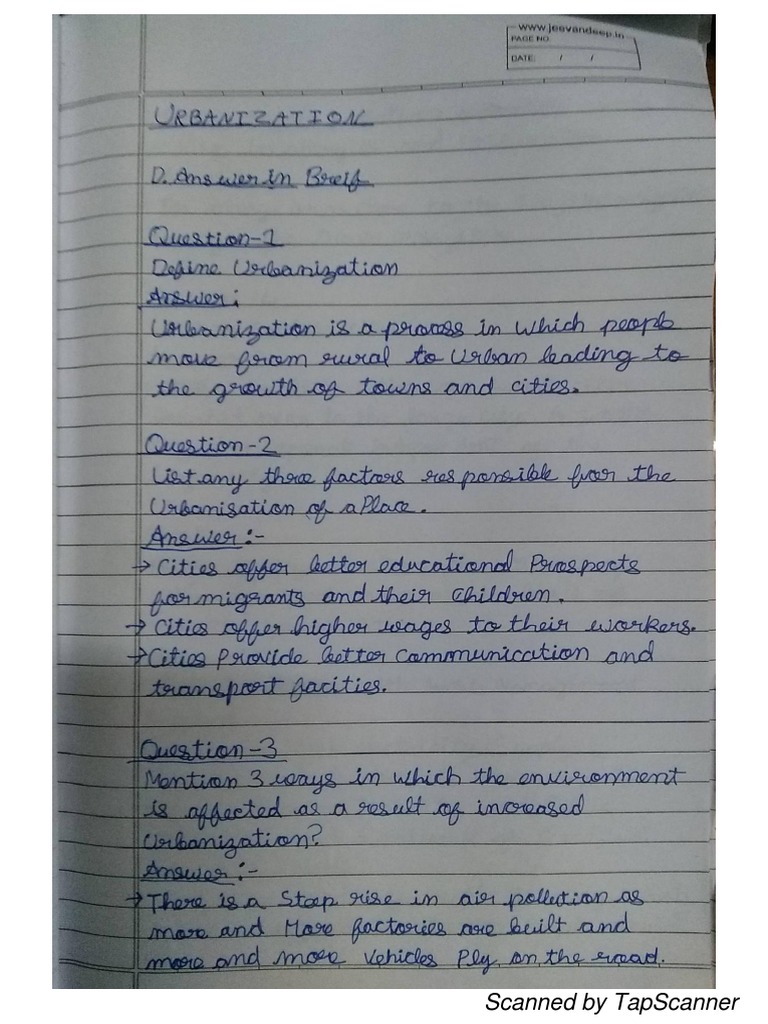 www.jeevandeep.in
PAGE NO.
DATE: / /
URBANIZATION
D. Answer in Breif
Question-1
Define Urbanization
Answer:
Urbanization is a process in which people
move from rural to Urban leading to
the growth of towns and cities.
Question-2
List any three factors responsible for the
Urbanisation of a Place.
Answer:-
→ Cities offer better educational Prospects
for migrants and their children.
→ Cities offer higher wages to their workers.
→ Cities Provide better communication and
transport facities.
Question-3
Mention 3 ways in which the environment
is affected as a result of increased
Urbanization?
Answer:-
→ There is a Steep rise in air pollution as
more and More factories are built and
more and more vehicles Ply on the road.
Scanned by TapScanner